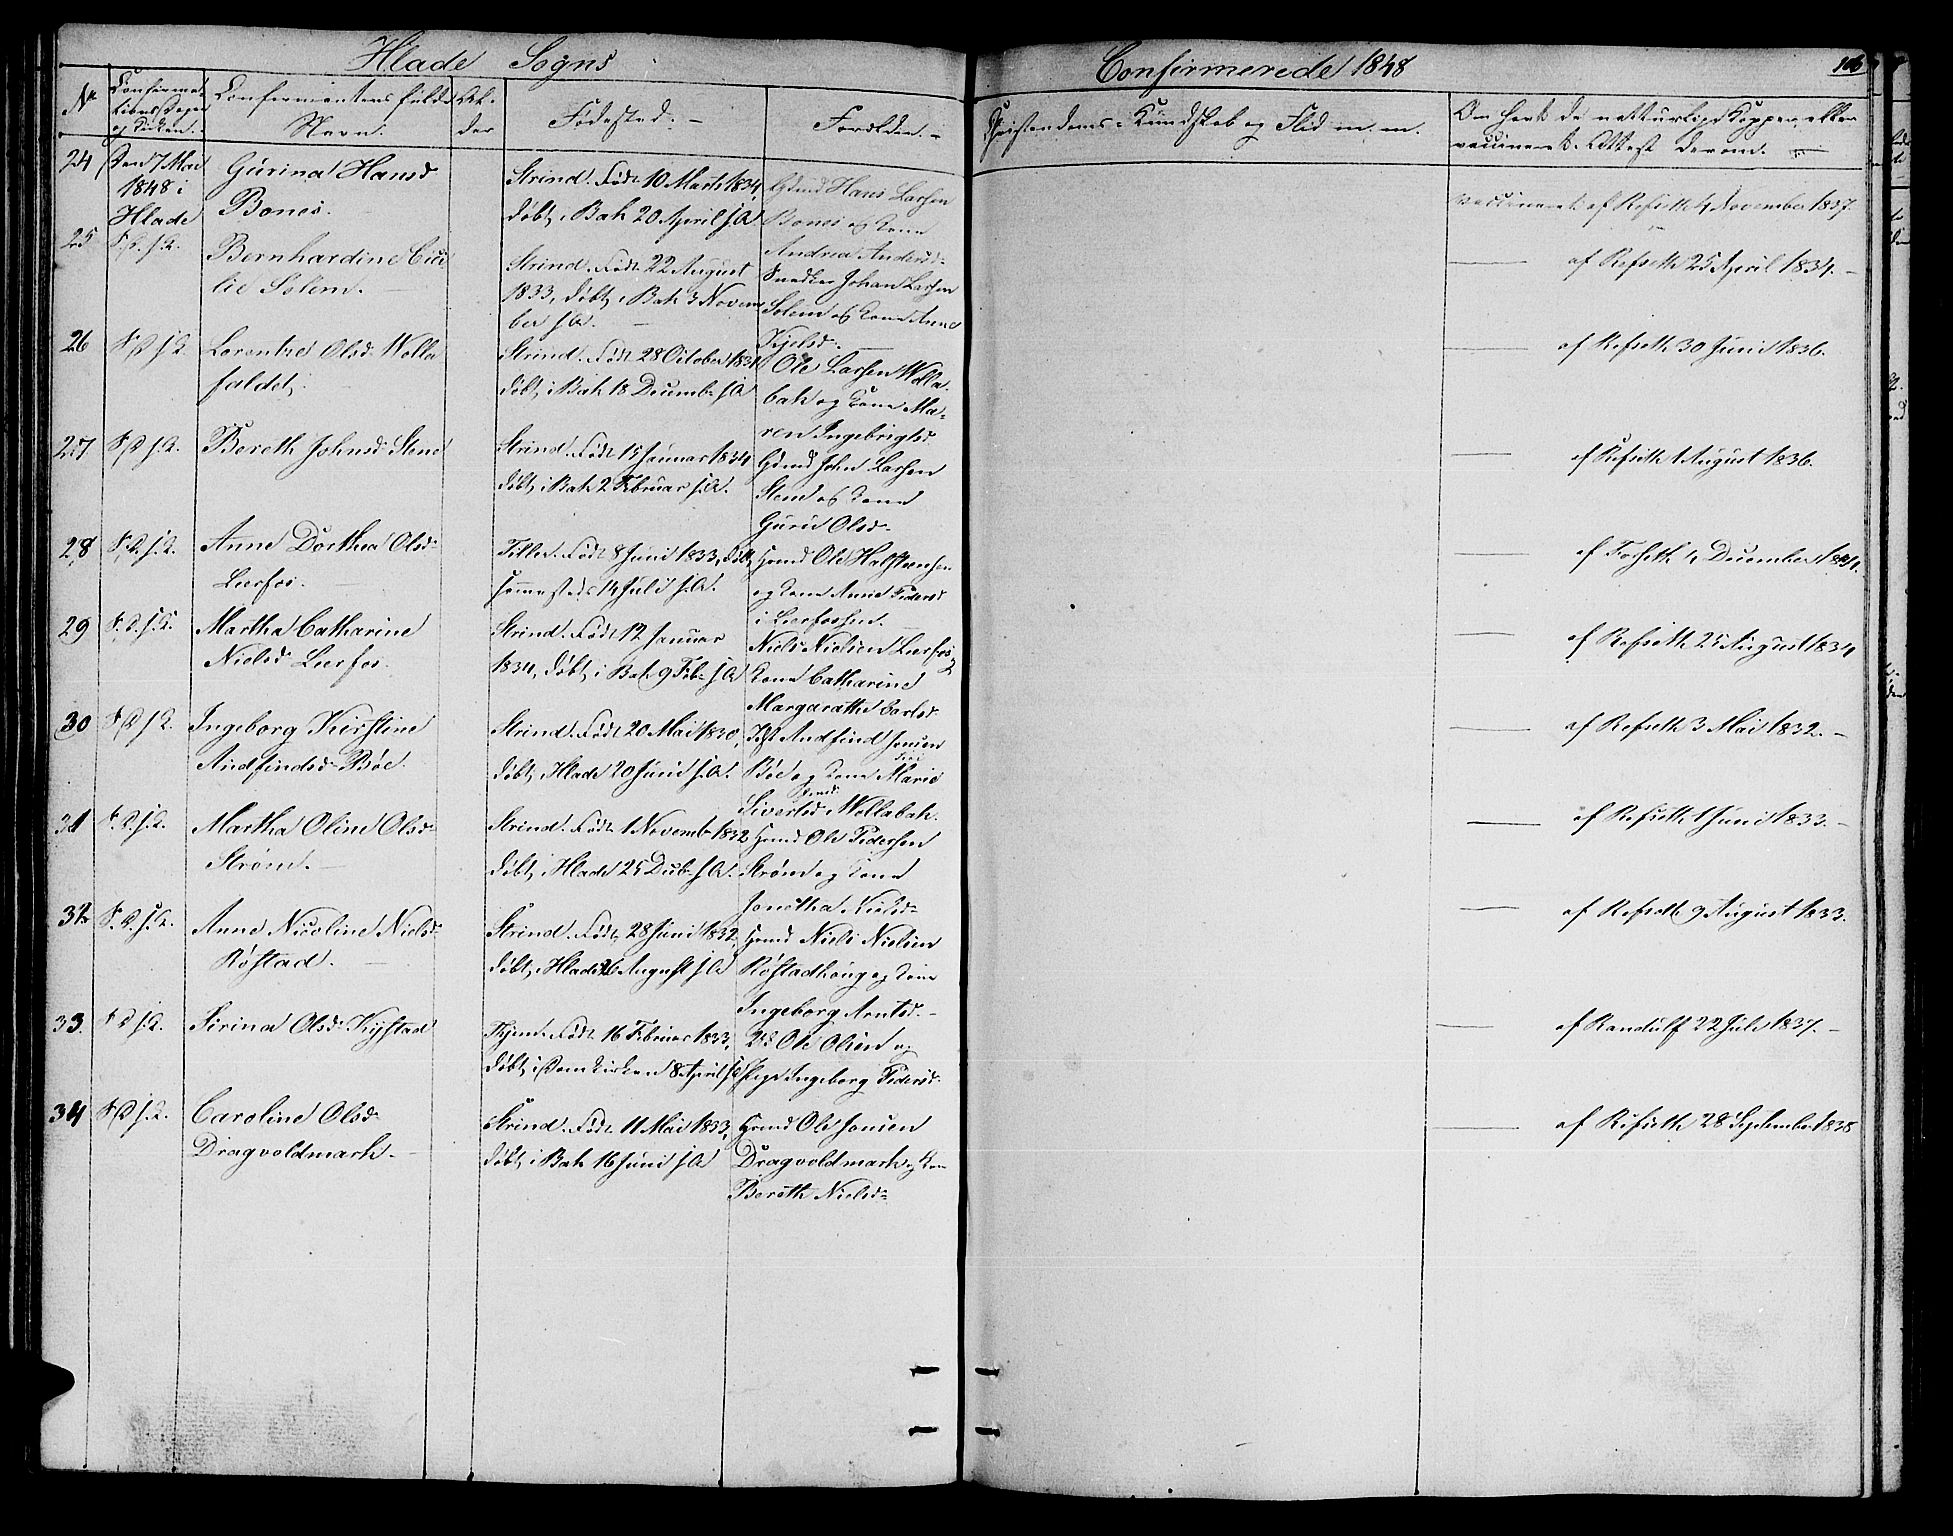 Hlade Sogns Confirmerede 1848
106
No
Confirma-
tions Dagen
og Kirken.
Confirmantens fulde
Navn.
Al-
der
Fødested. -
Forældre. -
Christendoms-Kundskab og Flid m. m.
Om havt de naturlige Kopper eller
vaccineret. Attest derom.
24 Den 7 Mai
1848 i
Hlade
Gurina Hansd
Bones.
Strind. Født 10 Marts 1834,
døbt i Bak 20 April s. A.
Gdmd Hans Larsen
Bones og Kone
Andrea Andersd-
vaccineret af Refseth 4 November 1837.
25 S. D. s. K.
Bernhardine Ceci
lie Solem. -
Strind. Født 22 August
1833, døbt i Bak 3 Novem
ber s. A.
Snedker Johan Larsen
Solem og Kone Anne
Kjelsd. -
af Refseth 25 April 1834. -
26 S. D. s. K.
Lorentze Olsd. Wolla
faldet.
Strind. Født 28 October 1834
døbt i Bak 18 Decembr s. A
Ole Larsen Wolla
bak og Kone Ma-
ren Ingebrigtsd.
af Refseth 30 Juni 1836.
27 S. D. s. K.
Bereth Johnsd. Stene
Strind. Født 15 Januar 1834
døbt i Bak 2 Februar s. A.
Gdmd John Larsen
Stene og Kone
Guru Olsd-
af Refseth 1 August 1836.
28 S. D. s. K.
Anne Dorthea Olsd-
Leerfos.
Tiller. Født 8 Juni 1833, døbt
sammesteds 14 Juli s. A.
Hmd Ole Halfstensen
og Kone Anne Pedersd
i Leerfossen.
af Forseth 4 December 1834.
29 S. D. s. K.
Martha Catharine
Nielsd Leerfos.
Strind. Født 12 Januar
1834, døbt i Bak 9 Feb. s. A
Niels Nielsen Leerfos &
Kone Catharine
Margarathe Carlsd
af Refseth 25 August 1834
30 S. D. s. K.
Ingeborg Kirstine
Andfindsd Bøe.
Strind. Født 20 Mai 1830,
døbt i Hlade 20 Juni s. A.
Andfind Jonsen
Bøe og Kone Marie
Sivertsd. Wollabak.
af Refseth 3 Mai 1832. -
31 S. D. s. K.
Martha Oline Olsd-
Strøm. -
Strind. Født 1 Novembr 1832
døbt i Hlade 25 Decbr s. A.
Hmd Ole Pedersen
Strøm og Kone
Jonetha Nielsd-
af Refseth 1 Juni 1833. -
32 S. D. s. K.
Anne Nicoline Nielsd-
Røstad. -
Strind. Født 28 Juni 1832,
døbt i Hlade 26 August s. A
Hmd Niels Nielsen
Røstadhaug og Kone
Ingeborg Arntsd. -
af Refseth 9 August 1833.
33. S. D. s. K.
Sirina Olsd. Kystad
Byen. Født 16 Februar 1833,
døbt i Domkirken 8 April s. A
Ole Olsen og
Pige Ingeborg Pedersd.
af Randulf 22 Juli 1837. -
34 S. D. s. K.
Caroline Olsd-
Dragvoldmark. -
Strind. Født 11 Mai 1833,
døbt i Bak 16 Juni s. A
Hmd Ole Jonsen
Dragvoldmark og Kone
Bereth Nielsd-
af Refseth 28 September 1838